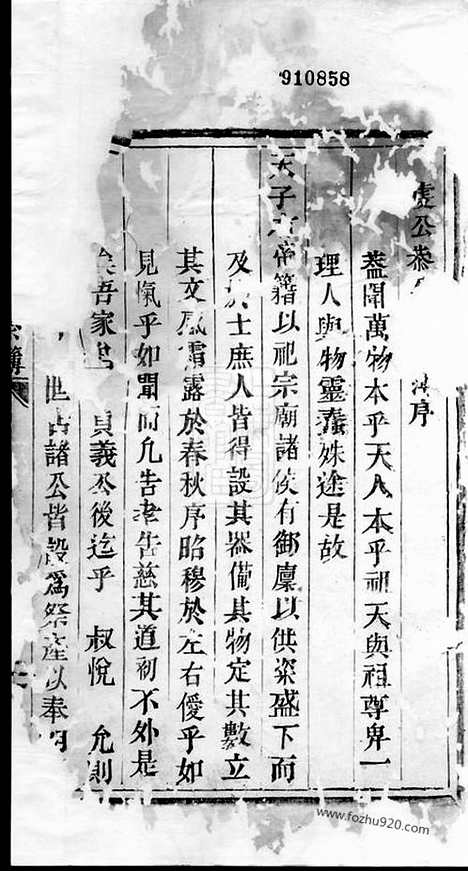 910858
虔公
序
蓋聞萬物本乎天人本乎祖天與祖尊卑一
理人與物靈蠢姝途是故
天子有帝籍以祀宗廟諸侯有御廩以供粢盛下而
及於士庶人皆得設其器備其物定其數立
其文感霜露於春秋序昭穆於左右僾乎如
見愾乎如聞而允告孝告慈其道初不外是
吾家 貞義公後迄乎 叔悅 允則
世 諸公皆設為祭產以奉
簿
www.fozhu920.com